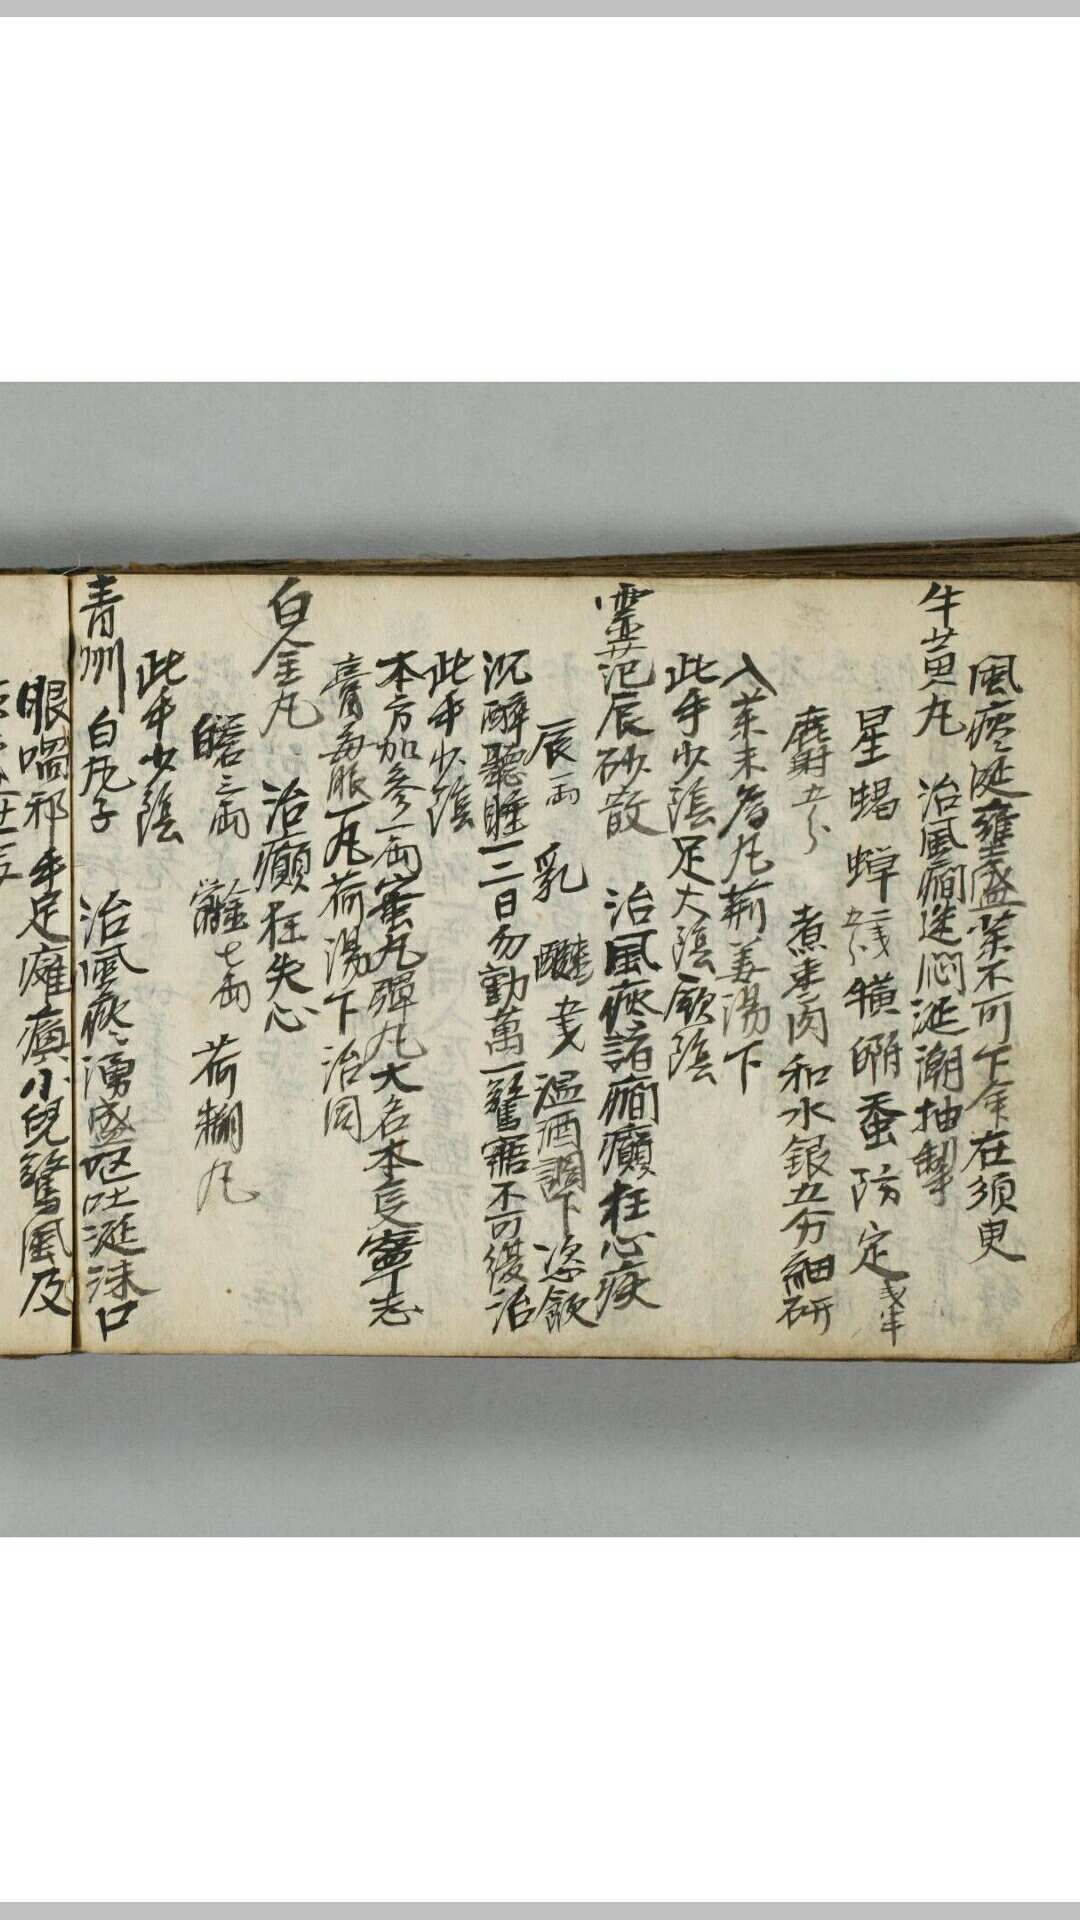 風痰涎壅盛藥不可下命在須臾
牛黃丸　治風癇迷悶涎潮抽掣
星蝎蟬二戔五分犢蚕防定戔半
麝五分　煮棗肉和水銀五分細研
入藥末為丸荊姜湯下
此手少陰足大陰厥陰
靈范辰砂散　治風痰諸癇癲狂心疾
辰一兩　乳　酸戔溫酒調下恣飲
沉醉聽睡一二日勿動萬一驚寤不可復治
此手少陰
本方加參一兩蜜丸彈丸大名本寧志
膏每服一丸荷湯下治同
白金丸　治癲狂失心
白三兩　七兩　荷糊丸
此手少陰
青州白丸子　治風痰湧盛嘔吐涎沫口
眼喎邪手足癱瘓小兒驚風及